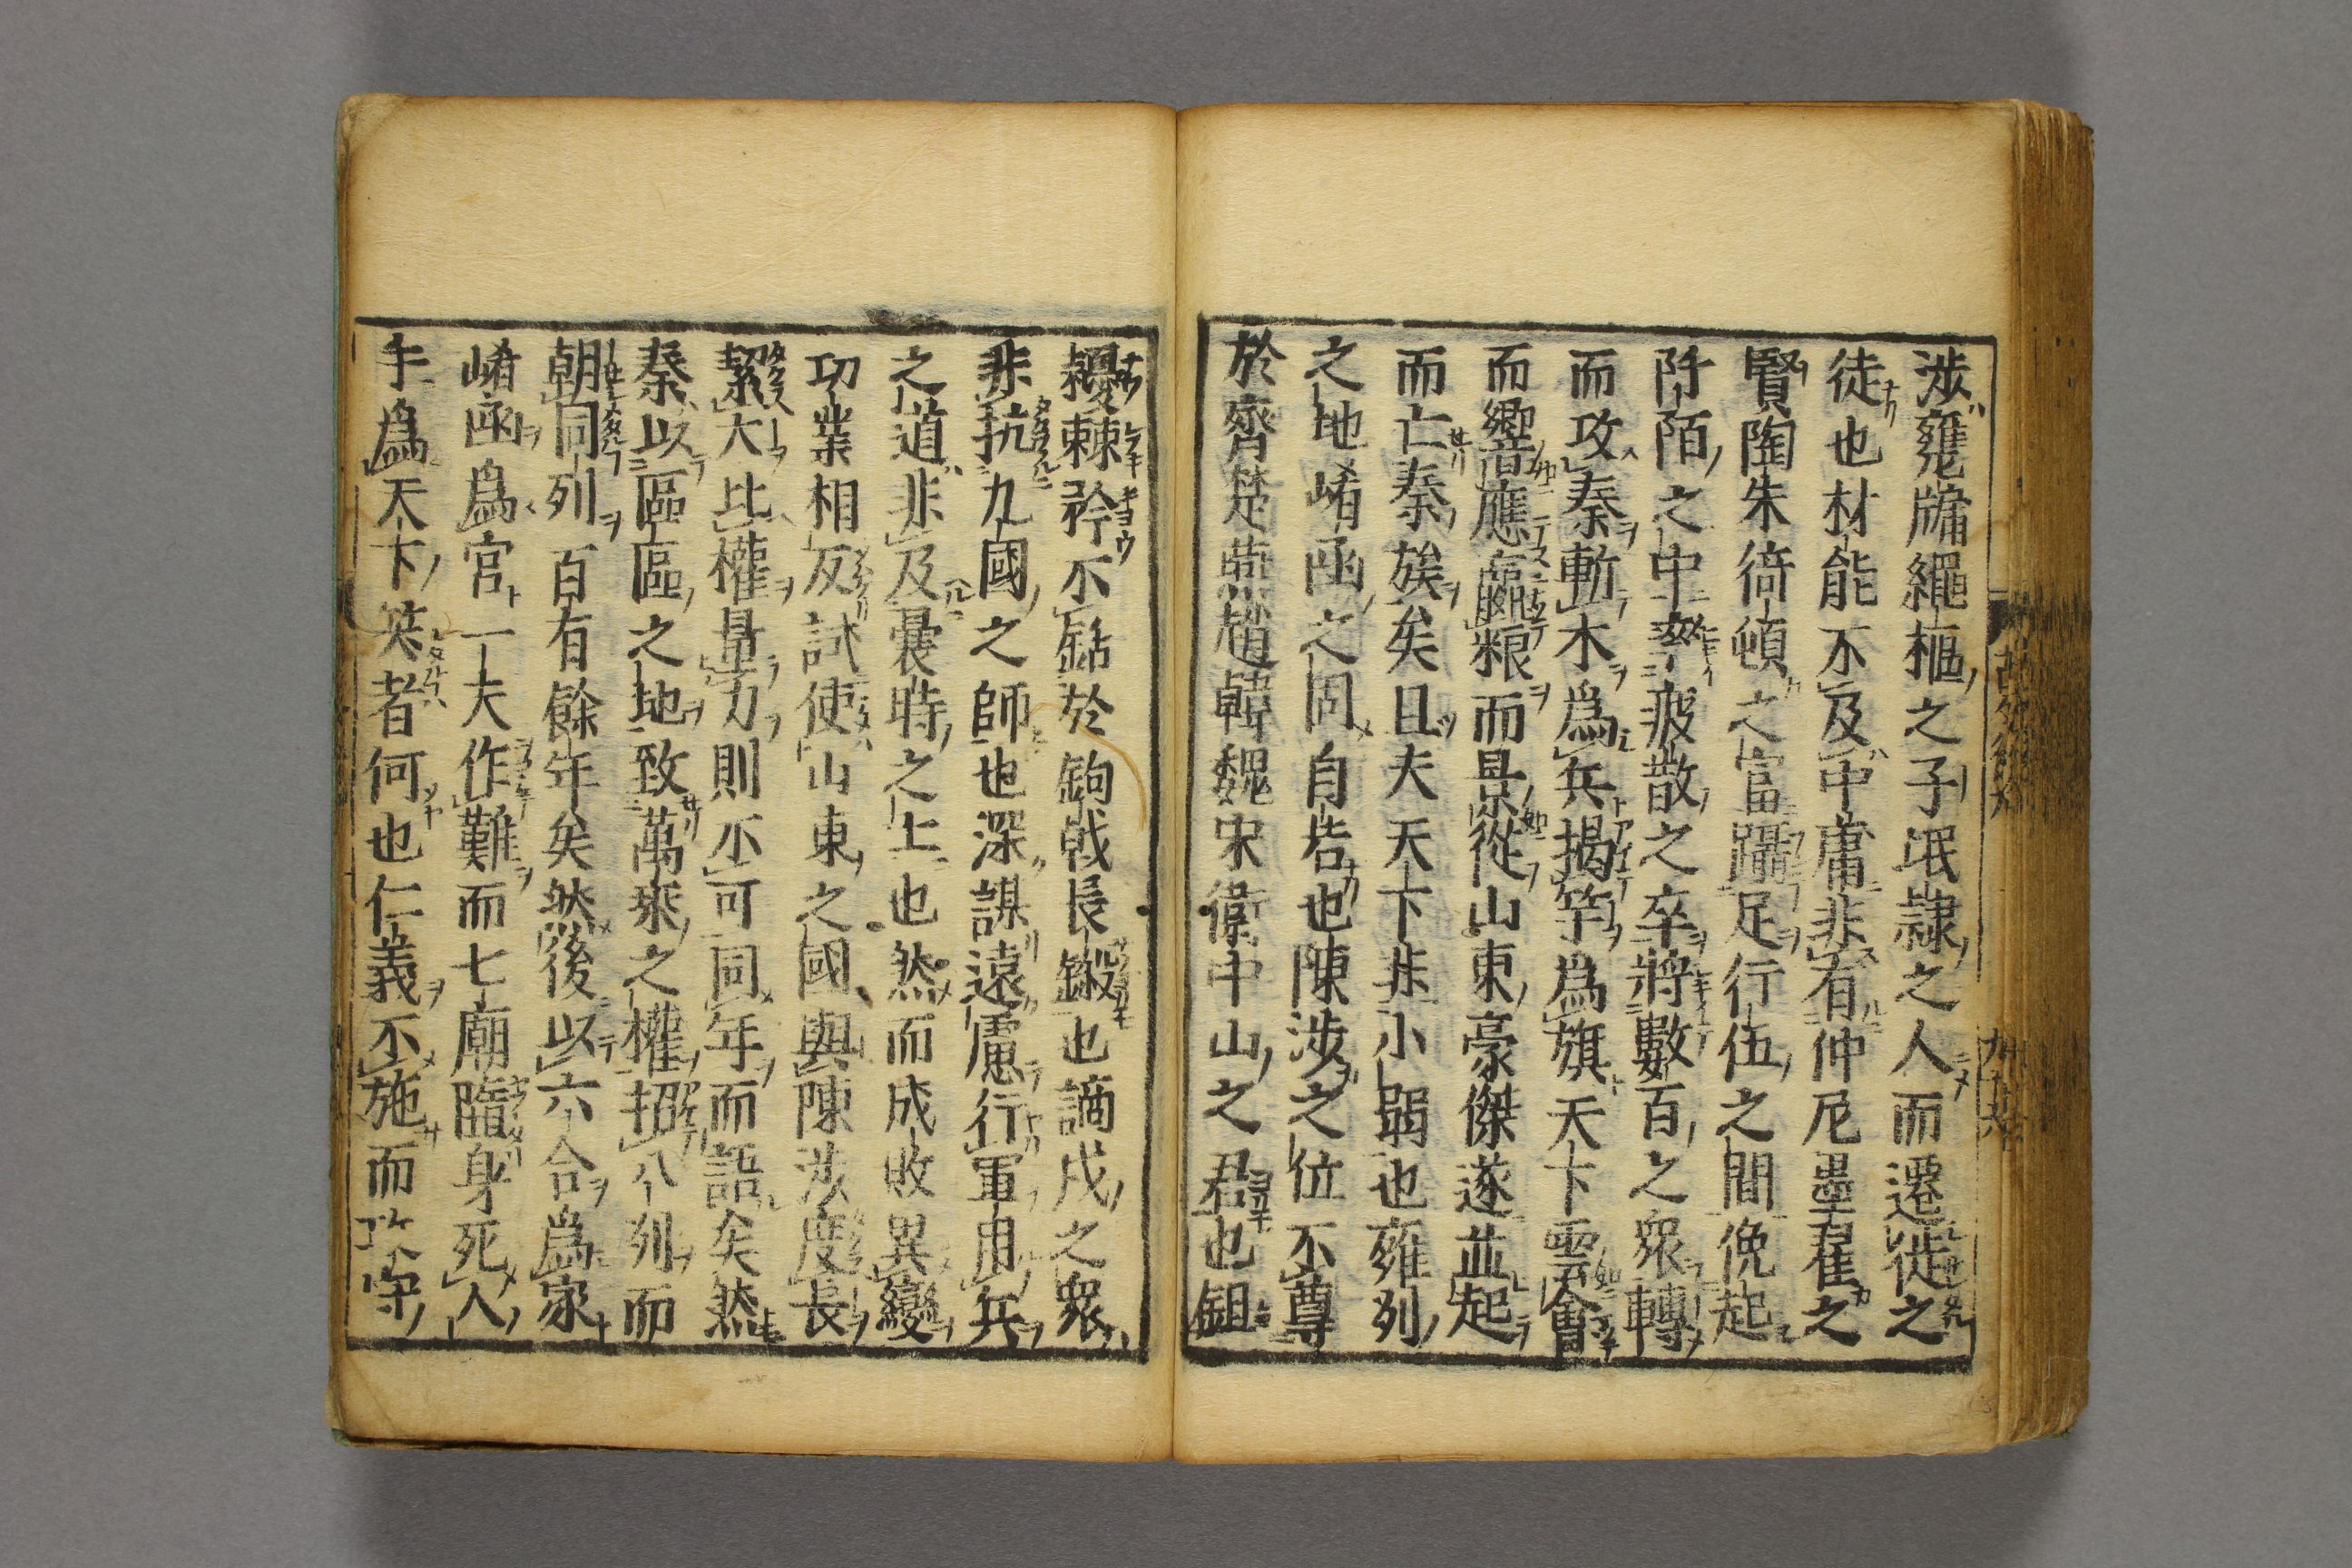 涉甕牖繩樞之子氓隷之人而遷徙之
徒也材能不及中庸非有仲尼墨翟之
賢陶朱猗頓之富躡足行伍之間俛起
阡陌之中率疲散之卒將數百之衆轉
而攻秦斬木為兵揭竿為旗天下雲會
而響應贏粮而景從山東豪傑遂並起
而亡秦族矣且夫天下非小弱也雍列
之地崤函之固自若也陳涉之位不尊
於齊楚燕趙韓魏宋衛中山之君也鉏
耰棘矜不銛於鉤戟長鎩也謫戍之衆
非抗九國之師也深謀遠慮行軍用兵
之道非及曩時之士也然而成敗異變
功業相反試使山東之國與陳涉度長
絜大比權量力則不可同年而語矣然
秦以區區之地致萬乘之權招八列而
朝同列百有餘年矣然後以六合為家
崤函為宮一夫作難而七廟隳身死人
手為天下笑者何也仁義不施而攻守